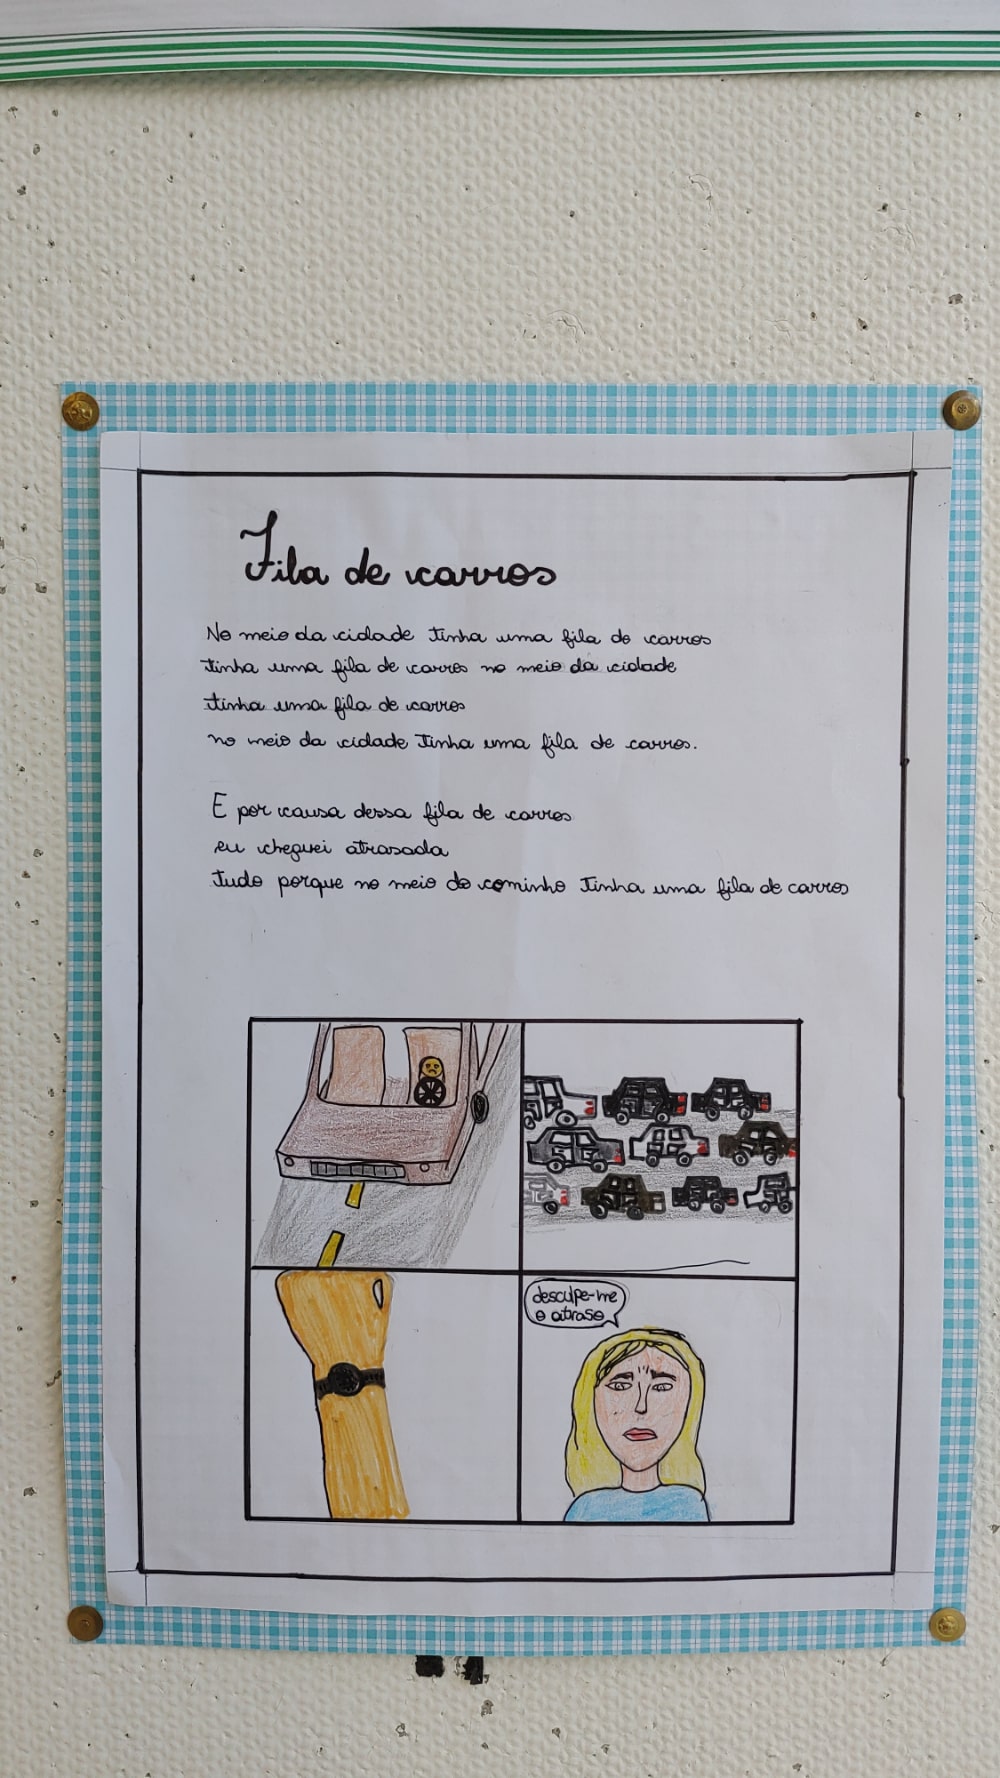 Fila de carros
No meio da cidade tinha uma fila de carros
tinha uma fila de carros no meio da cidade
tinha uma fila de carros
no meio da cidade tinha uma fila de carros.
E por causa dessa fila de carros
eu cheguei atrasada
tudo porque no meio do caminho tinha uma fila de carros
desculpe-me
o atraso